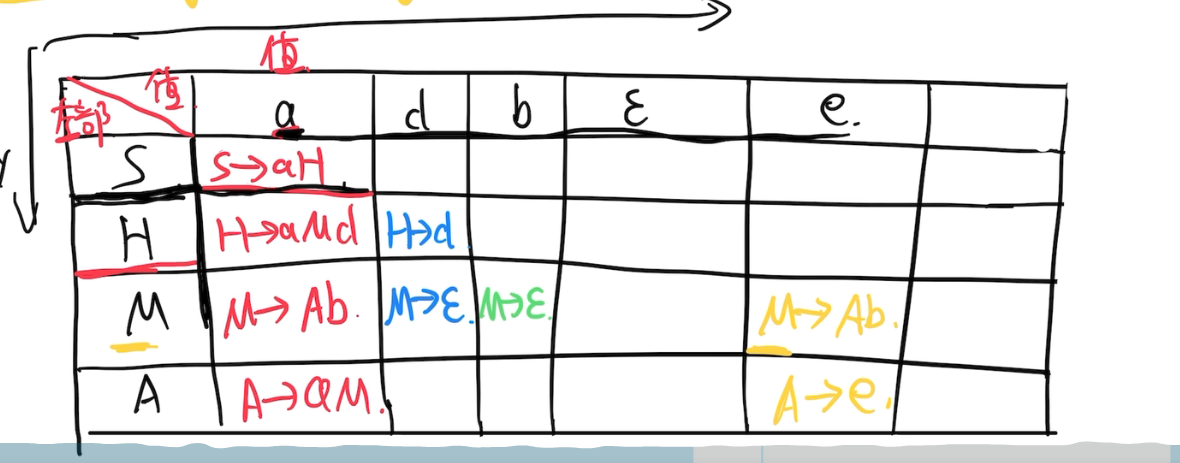 值
值 a d b ε e.
S S→aH
H H→aMd H→d
M M→Ab. M→ε. M→ε. M→Ab.
A A→aM. A→e.